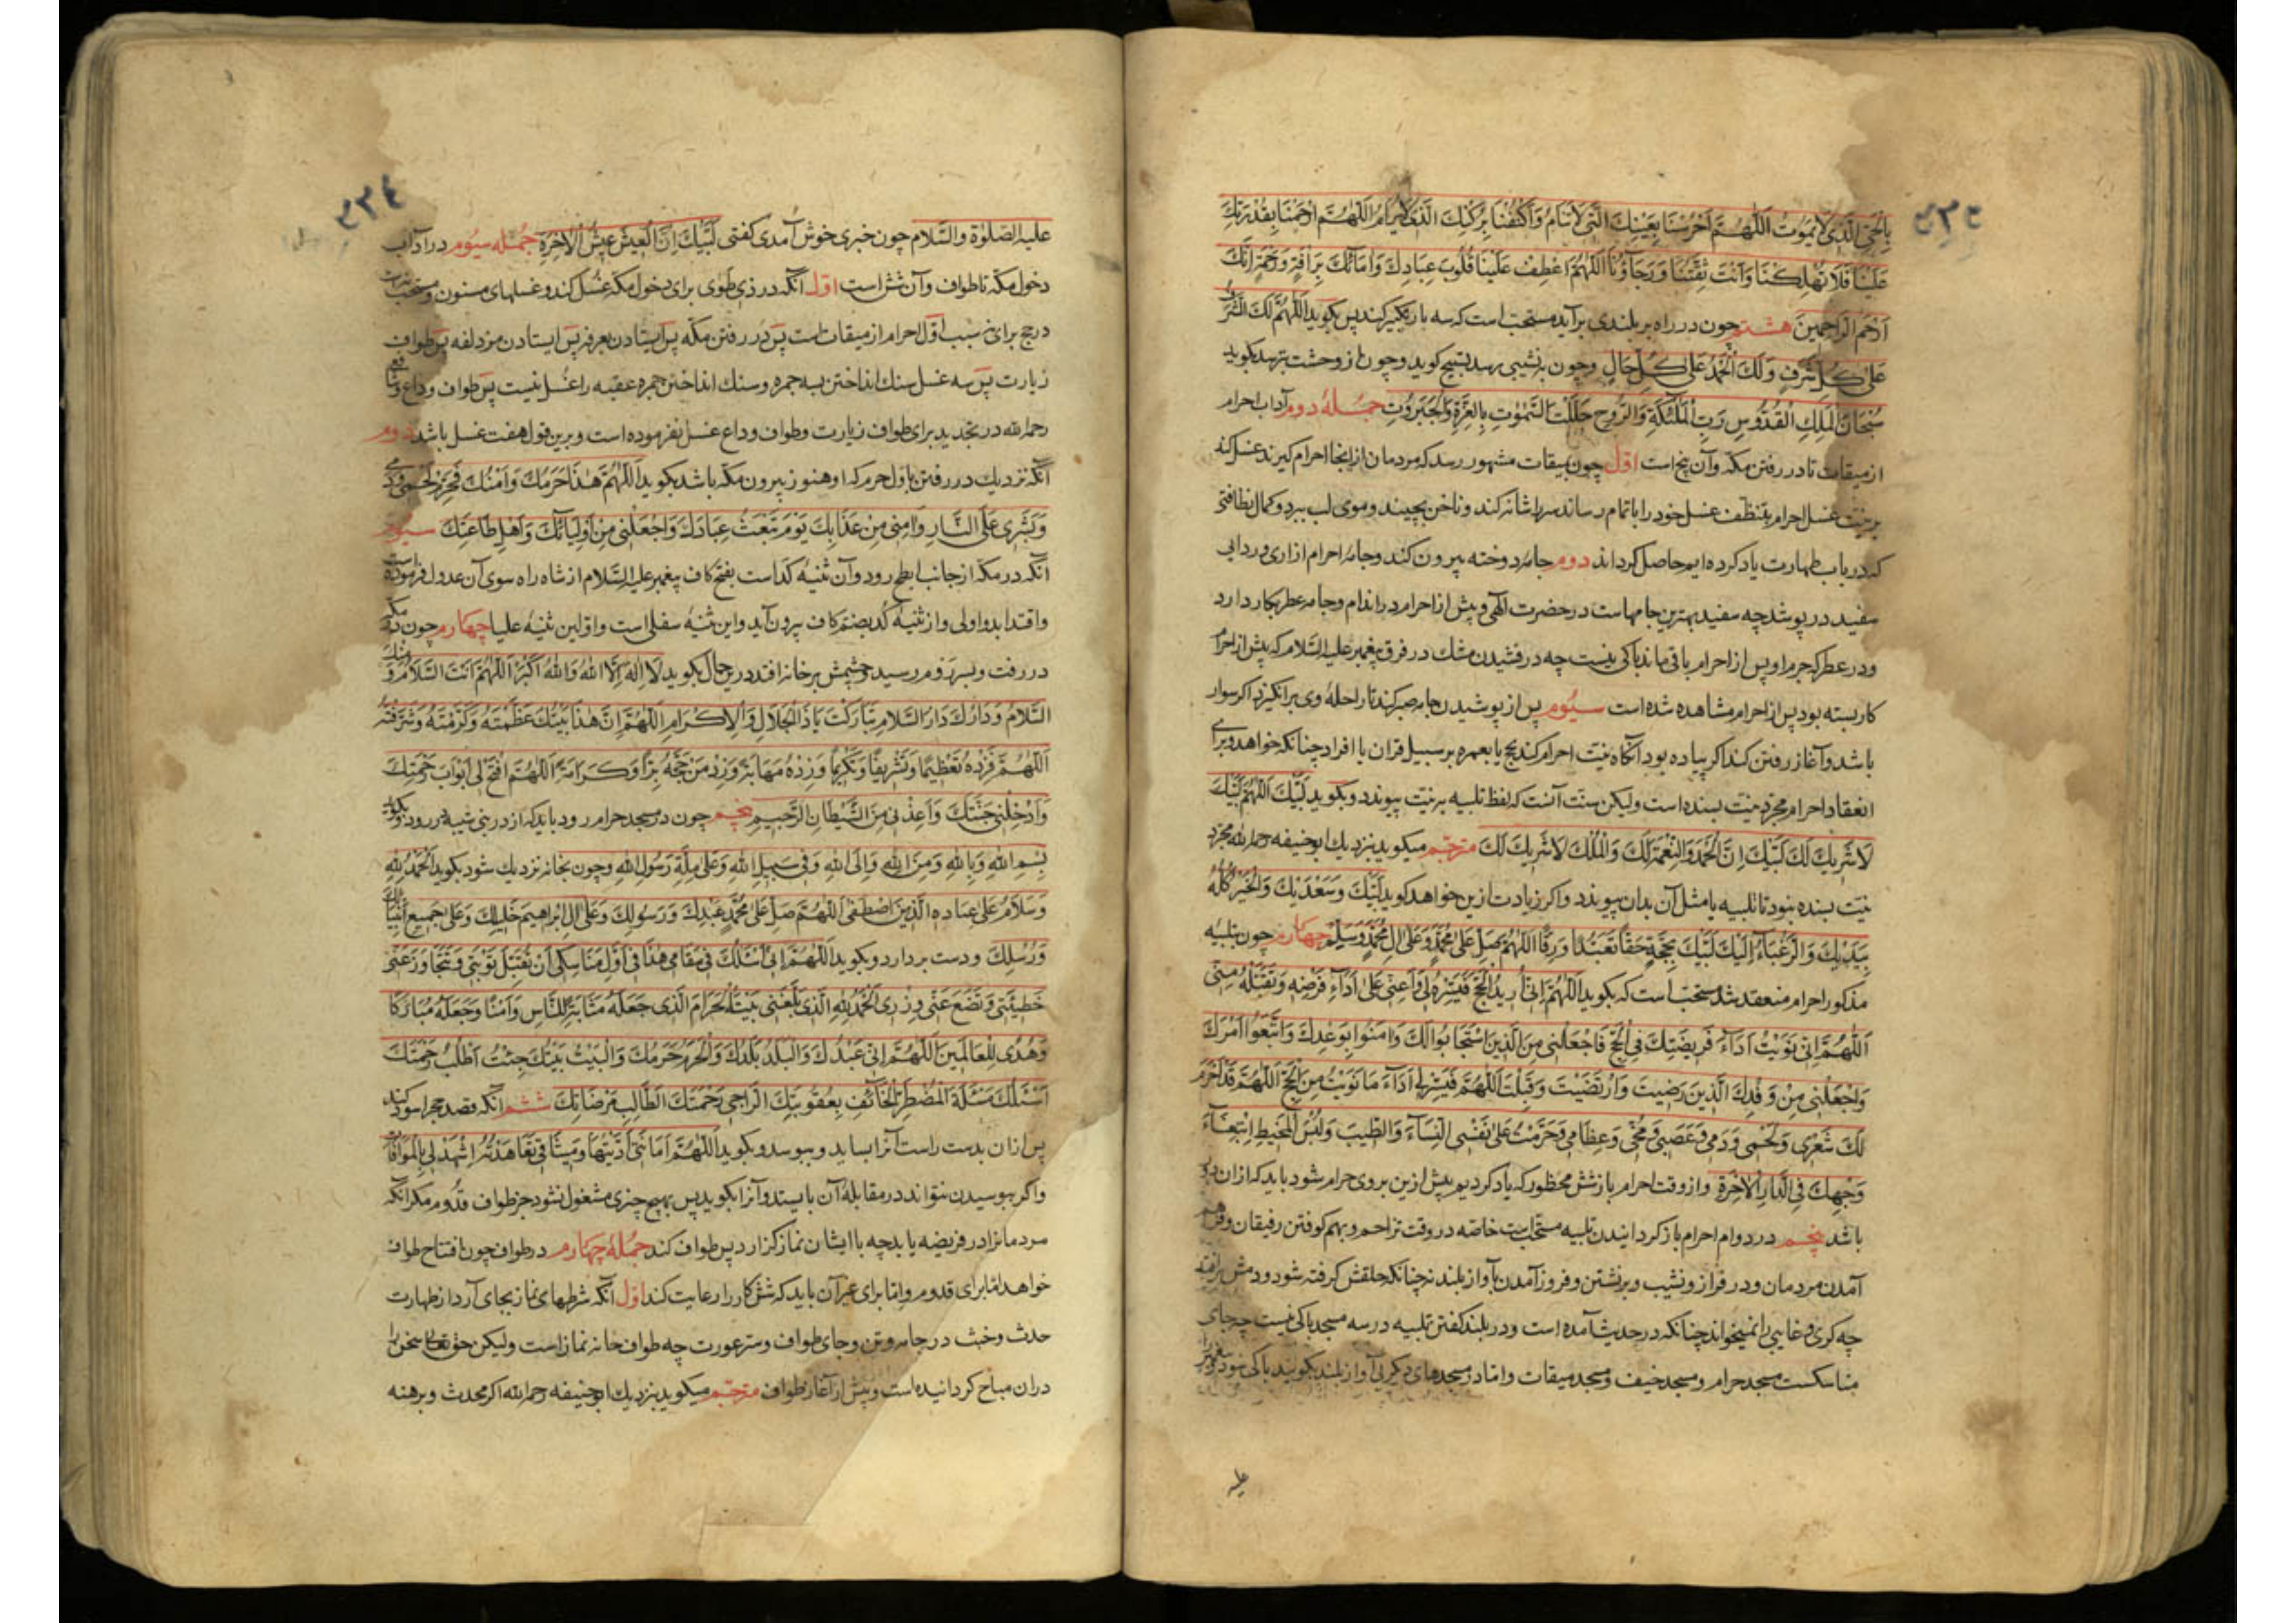 بِالْحَیِّ الَّذِی لَا یَمُوتُ اَللّٰهُمَّ احْرُسْنَا بِعَیْنِكَ الَّتِی لَا تَنَامُ وَاكْنُفْنَا بِرُكْنِكَ الَّذِی لَا یُرَامُ اَللّٰهُمَّ ارْحَمْنَا بِقُدْرَتِكَ
عَلَیْنَا فَلَا تُهْلِكْنَا وَاَنْتَ ثِقَتُنَا وَرَجَاؤُنَا اَللّٰهُمَّ اعْطِفْ عَلَیْنَا قُلُوبَ عِبَادِكَ وَاِمَائِكَ بِرَأفَةٍ وَرَحْمَةٍ اِنَّكَ
اَرْحَمُ الرَّاحِمِینَ هشتم چون در راه بر بلندی برآید مستحب است که سه بار تکبیر کند پس بکوید اَللّٰهُمَّ لَكَ الشَّرَفُ
عَلٰی كُلِّ شَرَفٍ وَلَكَ الْحَمْدُ عَلٰی كُلِّ حَالٍ وچون به نشیبی رسد تسبیح کوید وچون از وحشت بترسد بکوید
سُبْحَانَ الْمَلِكِ الْقُدُّوسِ رَبِّ الْمَلٰئِكَةِ وَالرُّوحِ جَلَّلْتَ السَّمٰوٰتِ بِالْعِزَّةِ وَالْجَبَرُوتِ جملهٔ دوم آداب احرام
از میقات تا در رفتن مکه وآن پنج است اوّل چون بمیقات مشهور رسد که مردمان از انجا احرام کیرند غسل کند
بر نیت غسل احرام بتنظف غسل خود را باتمام رساند سر را شانه کند وناخن بچیند وموی لب ببرد وکمال نظافتی
که در باب طهارت یاد کرده ایم حاصل کرداند دوم جامهٔ دوخته بیرون کند وجامهٔ احرام ازاری وردایی
سفید در پوشد چه سفید بهترین جامهاست در حضرت الٰهی وپیش از احرام در اندام وجامه عطر بکار دارد
ودر عطر که جرم او پس از احرام باقی ماند باکی نیست چه درفشیدن مشك در فرق پیغمبر علیه السّلام که پیش از احرام
کار بسته بود پس از احرام مشاهده شده است سیوم پس از پوشیدن جامه صبر کند تا راحلهٔ وی برانکیزد اکر سوار
باشد وآغاز رفتن کند اکر پیاده بود آنکاه نیت احرام کند بحج یا بعمره بر سبیل قران یا افراد چنانکه خواهد وبرای
انعقاد احرام مجرد نیت بسنده است ولیکن سنت آنست که لفظ تلبیه بر نیت پیوندد وبکوید لَبَّیْكَ اَللّٰهُمَّ لَبَّیْكَ
لَا شَرِیكَ لَكَ لَبَّیْكَ اِنَّ الْحَمْدَ وَالنِّعْمَةَ لَكَ وَالْمُلْكَ لَا شَرِیكَ لَكَ مترجم میکوید بنزدیك ابو حنیفه رحمه الله مجرد
نیت بسنده نبود تا تلبیه یا مثل آن بدان پیوندد واکر زیادت ازین خواهد کوید لَبَّیْكَ وَسَعْدَیْكَ وَالْخَیْرُ كُلُّهُ
بِیَدَیْكَ وَالرَّغْبَاءُ اِلَیْكَ لَبَّیْكَ بِحَجَّةٍ حَقًّا تَعَبُّدًا وَرِقًّا اَللّٰهُمَّ صَلِّ عَلٰی مُحَمَّدٍ وَعَلٰی اٰلِ مُحَمَّدٍ وَسَلِّمْ چهارم چون بتلبیه
مذکور احرام منعقد شد مستحب است که بکوید اَللّٰهُمَّ اِنِّی اُرِیدُ الْحَجَّ فَیَسِّرْهُ لِی وَاَعِنِّی عَلٰی اَدَاءِ فَرْضِهِ وَتَقَبَّلْهُ مِنِّی
اَللّٰهُمَّ اِنِّی نَوَیْتُ اَدَاءَ فَرِیضَتِكَ فِی الْحَجِّ فَاجْعَلْنِی مِنَ الَّذِینَ اسْتَجَابُوا لَكَ وَاٰمَنُوا بِوَعْدِكَ وَاتَّبَعُوا اَمْرَكَ
وَاجْعَلْنِی مِنْ وَفْدِكَ الَّذِینَ رَضِیتَ وَارْتَضَیْتَ وَقَبِلْتَ اَللّٰهُمَّ فَیَسِّرْ لِی اَدَاءَ مَا نَوَیْتُ مِنَ الْحَجِّ اَللّٰهُمَّ قَدْ اَحْرَمَ
لَكَ شَعْرِی وَلَحْمِی وَدَمِی وَعَصَبِی وَمُخِّی وَعِظَامِی وَحَرَّمْتُ عَلٰی نَفْسِی النِّسَاءَ وَالطِّیبَ وَلُبْسَ الْمَخِیطِ ابْتِغَاءَ
وَجْهِكَ فِی الدَّارِ الْاٰخِرَةِ واز وقت احرام باز شش محظور که یاد کردیم پیش ازین بر وی حرام شود باید که ازان دور
باشد پنجم در دوام احرام باز کردانیدن تلبیه مستحب است خاصه در وقت تزاحم وبهم کوفتن رفیقان وفراهم
آمدن مردمان ودر فراز ونشیب وبرنشستن وفروز آمدن بآواز بلند نه چنانکه حلقش کرفته شود ودمش
چه کری وغایبی را نمیخواند چنانکه در حدیث آمده است ودر بلند کفتن تلبیه در سه مسجد باکی نیست چه جای
مناسکست مسجد حرام ومسجد خیف ومسجد میقات واما در مسجدهای دیکر بی آواز بلند بکویند باکی نبود پیغمبر
علیه
٤٣٤
علیه الصّلوٰة والسّلام چون خبری خوش آمدی کفتی لَبَّیْكَ اِنَّ الْعَیْشَ عَیْشُ الْاٰخِرَةِ جمله سیوم در آداب
دخول مکه تا طواف وآن شش است اوّل آنکه در ذی طوی برای دخول مکه غسل کند وغسلهای مسنون ومستحب
در حج برای نه سبب اوّل احرام از میقاتست پس در رفتن مکه پس ایستادن بعرفه پس ایستادن مزدلفه پس طواف
زیارت پس سه غسل سنك انداختن بسه جمره وسنك انداختن جمره عقبه را غسل نیست پس طواف وداع وشافعی
رحمه الله در تجدید برای طواف زیارت وطواف وداع غسل نفرموده است وبرین قول هفت غسل باشد دوم
آنکه نزدیك در رفتن باوّل حرم که او هنوز بیرون مکه باشد بکوید اَللّٰهُمَّ هٰذَا حَرَمُكَ وَاَمْنُكَ فَحَرِّمْ لَحْمِی وَدَمِی
وَبَشَرِی عَلَی النَّارِ وَاٰمِنِّی مِنْ عَذَابِكَ یَوْمَ تَبْعَثُ عِبَادَكَ وَاجْعَلْنِی مِنْ اَوْلِیَائِكَ وَاَهْلِ طَاعَتِكَ سیوم
آنکه در مکه از جانب ابطح رود وآن ثنیهٔ کَداست بفتح کاف پیغمبر علیه السّلام از شاه راه سوی آن عدول فرموده است
واقتدا بدو اولی واز ثنیهٔ کُدا بضم کاف بیرون آید واین ثنیهٔ سفلی است واوّلین ثنیهٔ علیا چهارم چون در مکه
در رفت وبسر زوم رسید چشمش بر خانه افتد در ین حال بکوید لَا اِلٰهَ اِلَّا اللهُ وَاللهُ اَكْبَرُ اَللّٰهُمَّ اَنْتَ السَّلَامُ وَمِنْكَ
السَّلَامُ وَدَارُكَ دَارُ السَّلَامِ تَبَارَكْتَ یَا ذَا الْجَلَالِ وَالْاِكْرَامِ اَللّٰهُمَّ اِنَّ هٰذَا بَیْتُكَ عَظَّمْتَهُ وَكَرَّمْتَهُ وَشَرَّفْتَهُ
اَللّٰهُمَّ فَزِدْهُ تَعْظِیمًا وَتَشْرِیفًا وَتَكْرِیمًا وَزِدْهُ مَهَابَةً وَزِدْ مَنْ حَجَّهُ بِرًّا وَكَرَامَةً اَللّٰهُمَّ افْتَحْ لِی اَبْوَابَ رَحْمَتِكَ
وَاَدْخِلْنِی جَنَّتَكَ وَاَعِذْنِی مِنَ الشَّیْطَانِ الرَّجِیمِ پنجم چون در مسجد حرام رود باید که از در بنی شیبه در رود وبکوید
بِسْمِ اللهِ وَبِاللهِ وَمِنَ اللهِ وَاِلَی اللهِ وَفِی سَبِیلِ اللهِ وَعَلٰی مِلَّةِ رَسُولِ اللهِ وچون بخانه نزدیك شود بکوید اَلْحَمْدُ لِلّٰهِ
وَسَلَامٌ عَلٰی عِبَادِهِ الَّذِینَ اصْطَفٰی اَللّٰهُمَّ صَلِّ عَلٰی مُحَمَّدٍ عَبْدِكَ وَرَسُولِكَ وَعَلٰی اِبْرَاهِیمَ خَلِیلِكَ وَعَلٰی جَمِیعِ اَنْبِیَائِكَ
وَرُسُلِكَ ودست بردارد وبکوید اَللّٰهُمَّ اِنِّی اَسْئَلُكَ فِی مَقَامِی هٰذَا فِی اَوَّلِ مَنَاسِكِی اَنْ تَقْبَلَ تَوْبَتِی وَتَتَجَاوَزَ عَنْ
خَطِیئَتِی وَتَضَعَ عَنِّی وِزْرِی اَلْحَمْدُ لِلّٰهِ الَّذِی بَلَّغَنِی بَیْتَهُ الْحَرَامَ الَّذِی جَعَلَهُ مَثَابَةً لِلنَّاسِ وَاَمْنًا وَجَعَلَهُ مُبَارَكًا
وَهُدًی لِلْعَالَمِینَ اَللّٰهُمَّ اِنِّی عَبْدُكَ وَالْبَلَدُ بَلَدُكَ وَالْحَرَمُ حَرَمُكَ وَالْبَیْتُ بَیْتُكَ جِئْتُ اَطْلُبُ رَحْمَتَكَ
اَسْئَلُكَ مَسْئَلَةَ الْمُضْطَرِّ الْخَائِفِ بِعُقُوبَتِكَ الرَّاجِی رَحْمَتَكَ الطَّالِبِ مَرْضَاتِكَ ششم آنکه قصد حجر اسود کند
پس ازان بدست راست آنرا بساید وببوسد وبکوید اَللّٰهُمَّ اَمَانَتِی اَدَّیْتُهَا وَمِیثَاقِی تَعَاهَدْتُهُ اِشْهَدْ لِی بِالْمُوَافَاةِ
واکر بوسیدن نتواند در مقابلهٔ آن بایستد وآنرا بکوید پس بهیچ چیزی مشغول نشود جز طواف قدوم مکر آنکه
مردمانرا در فریضه یابد چه با ایشان نماز کزارد پس طواف کند جملهٔ چهارم در طواف چون افتتاح طواف
خواهد اما برای قدوم واما برای غیر آن باید که شش کار را رعایت کند اوّل آنکه شرطهای نماز بجای آرد از طهارت
حدث وخبث در جامه وتن وجای طواف وستر عورت چه طواف خانه نماز است ولیکن حق تعالی سخن را
دران مباح کردانیده است وپیش از آغاز طواف مترجم میکوید بنزدیك ابو حنیفه رحمه الله اکر محدث وبرهنه